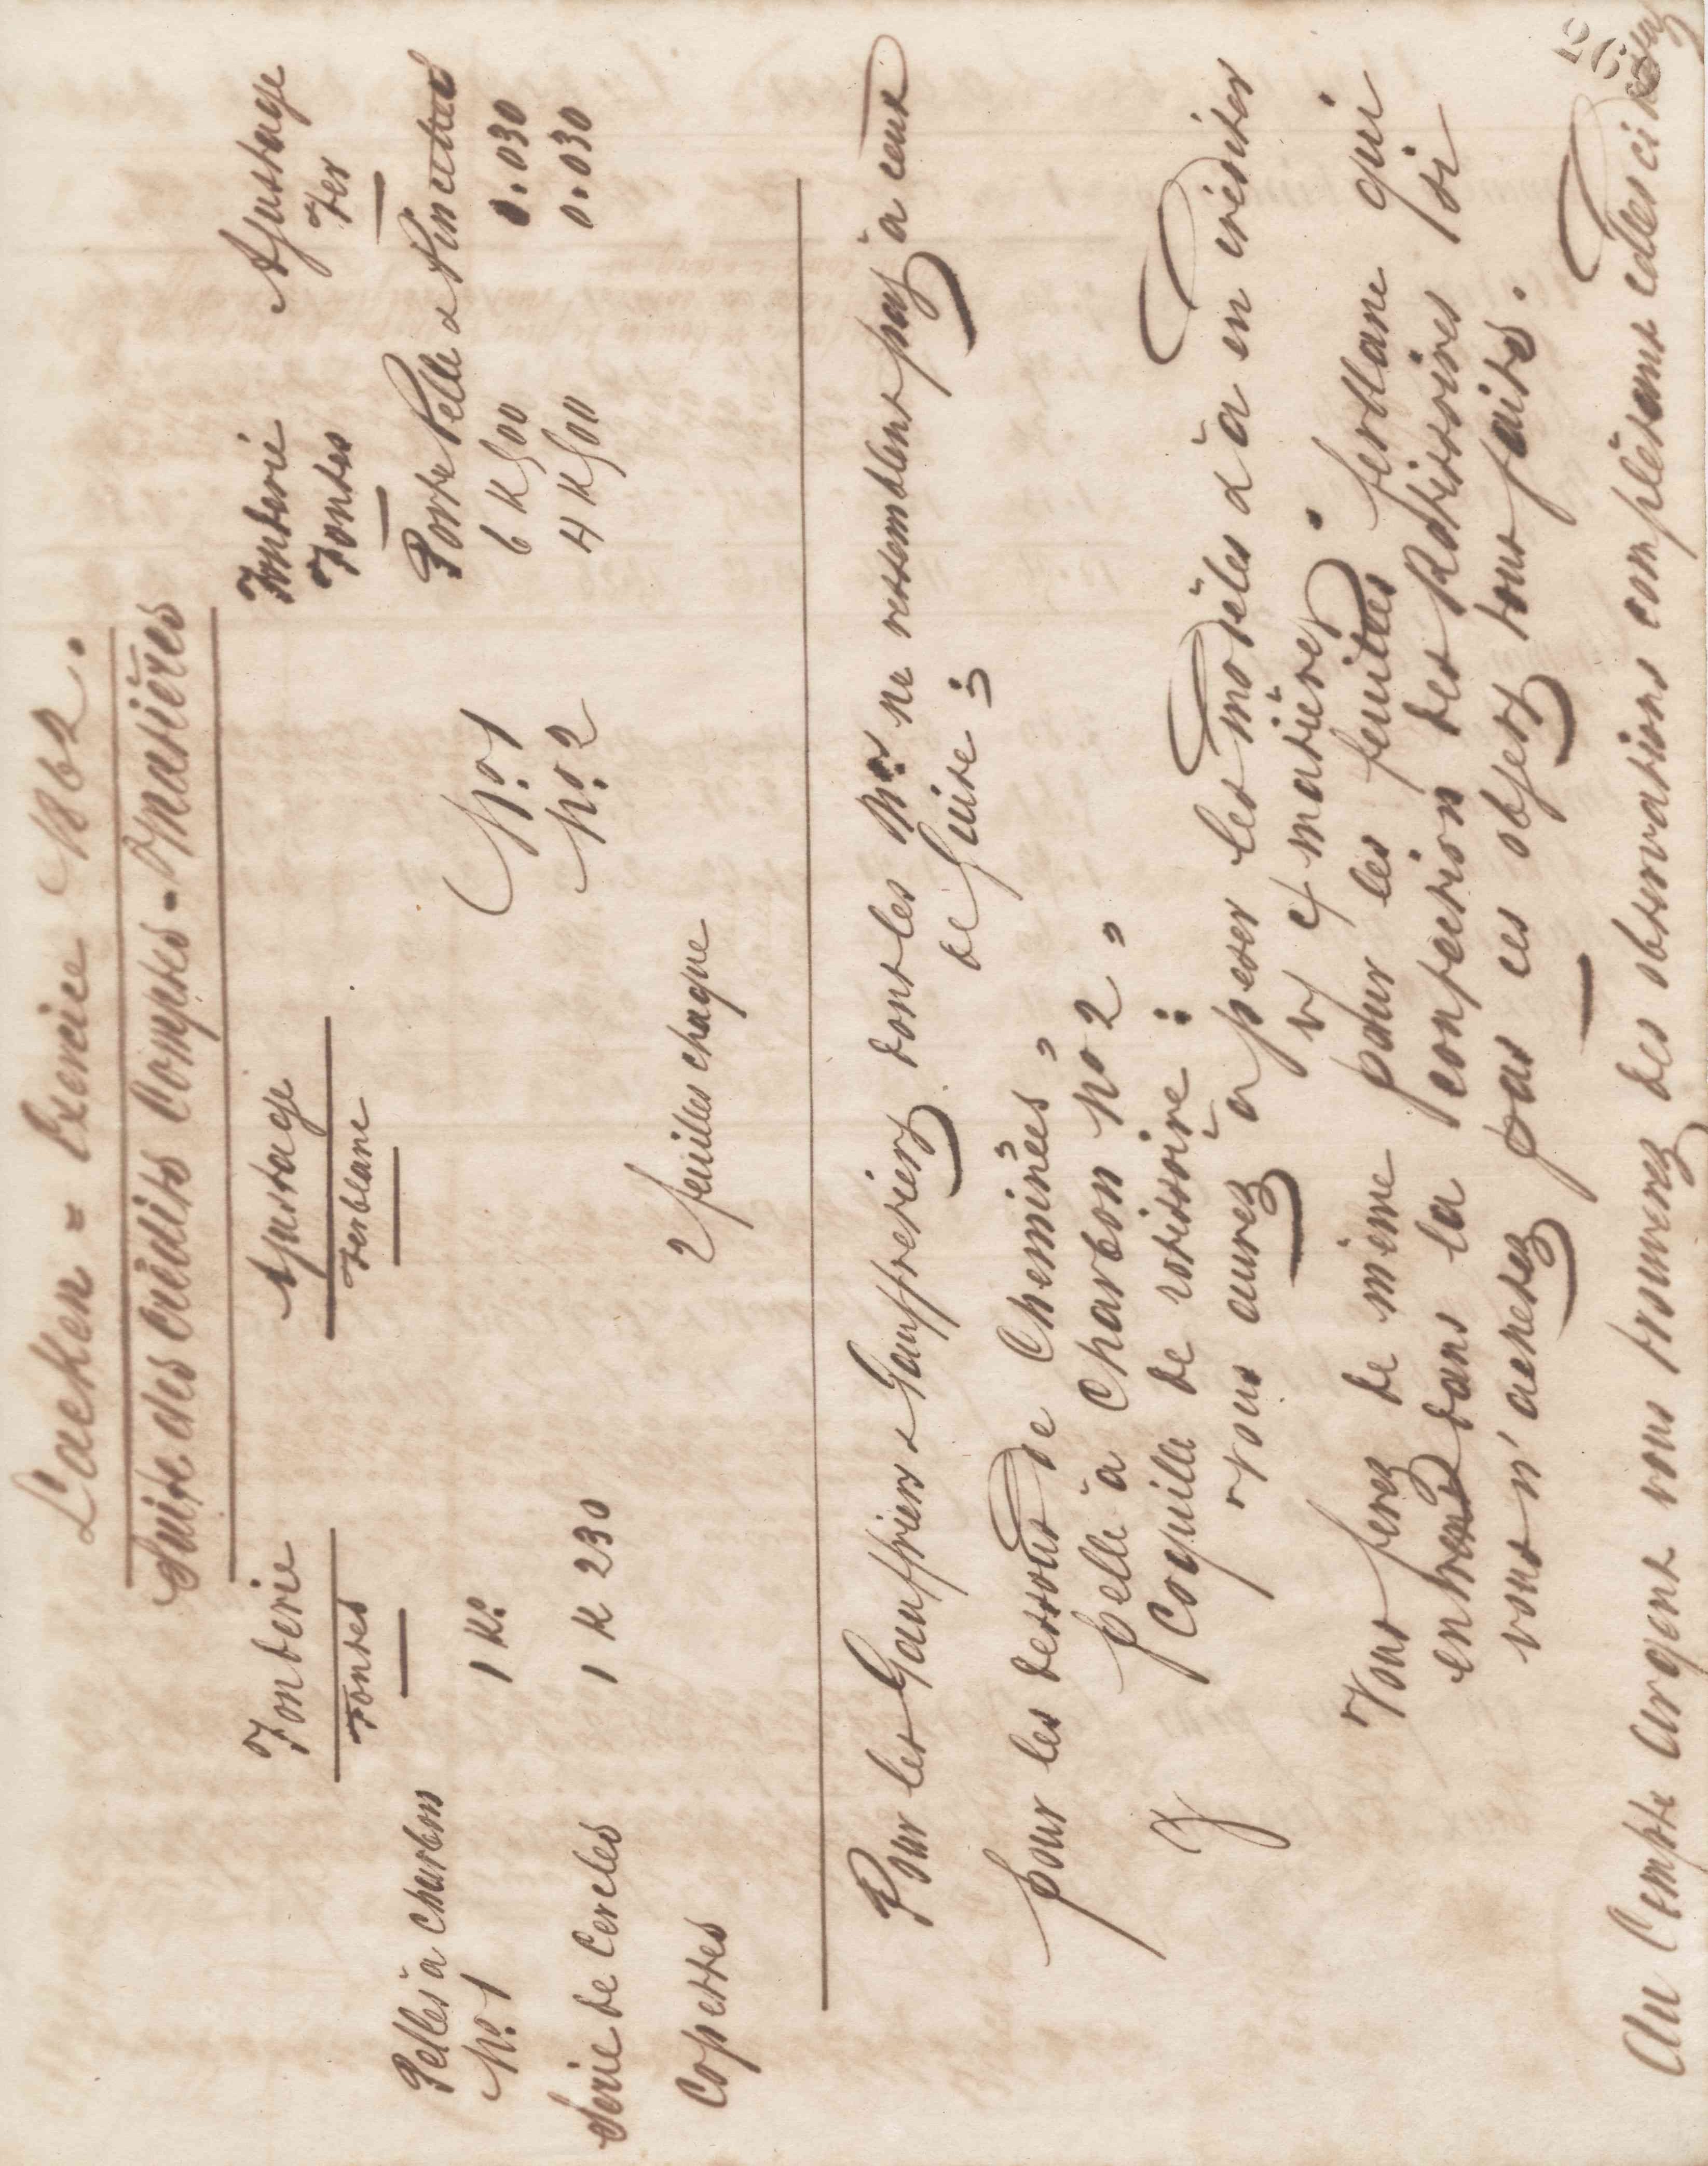 Laeken = Exercice 1862.
Suite des crédits Comptes - Matières
Fonderie Ajustage Fonderie Ajustage
Fontes Ferblanc Fontes Fer
Pelles à charbon Porte Pelle & Pincettes
No. 1 1 Ko. No. 1 6 K 500 0.030
Série de Cercles 1 K 230 No. 2 4 K 500 0.030
Copettes 2 feuilles chaque
Pour les Gauffriers & Gauffretiers dont les Nos. ne ressemblent pas à ceux
de Guise ;
pour les dessous de Cheminées,
pelle à Charbon No 2,
Coquille de rotissoire :
vous aurez à peser les modèles & à en créditer
vos Cpt matières.
Vous ferez de même pour les feuilles ferblanc qui
entrent dans la confection des Rotissoires si
vous n'achetez pas ces objets tout faits.
Au Compte argent vous trouverez des observations complétant celles ci
26